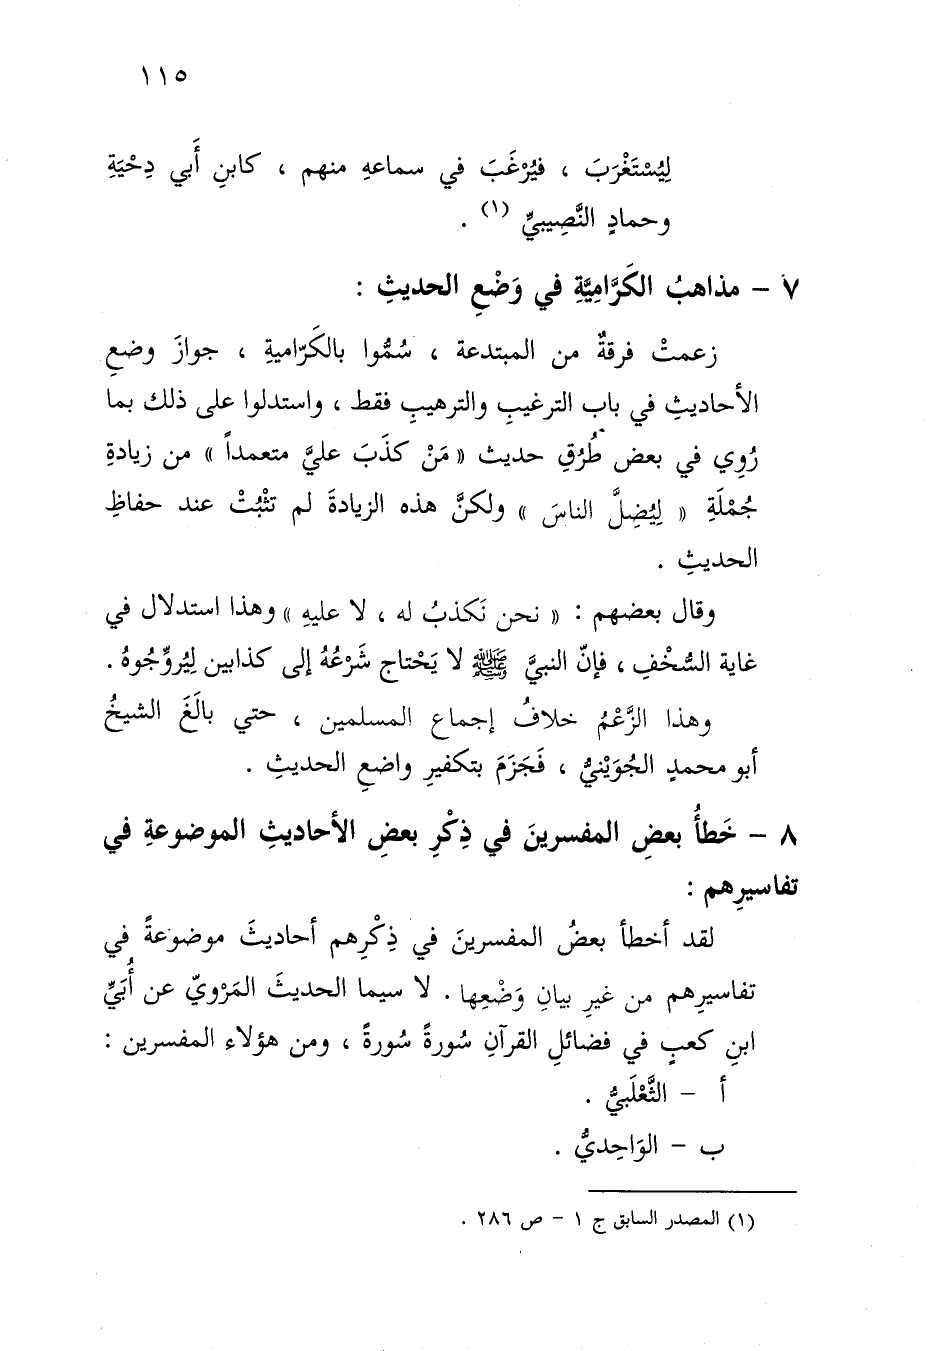 ١١٥
لِيُسْتَغْرَبَ ، فيُرْغَبَ في سماعهِ منهم ، كابنِ أَبي دِحْيَةِ
وحمادٍ النَّصِيبيِّ (١) .
٧ – مذاهبُ الكَرَّامِيَّةِ في وَضْعِ الحديثِ :
زعمتْ فرقةٌ من المبتدعة ، سُمُّوا بالكَرّاميةِ ، جوازَ وضعِ
الأحاديثِ في باب الترغيبِ والترهيبِ فقط ، واستدلوا على ذلك بما
رُوِي في بعض طُرُقِ حديث « مَنْ كذَبَ عليَّ متعمداً » من زيادةِ
جُمْلَةِ « لِيُضِلَّ الناسَ » ولكنَّ هذه الزيادةَ لم تثْبُتْ عند حفاظِ
الحديثِ .
وقال بعضهم : « نحن نَكذبُ له ، لا عليهِ » وهذا استدلال في
غاية السُّخْفِ ، فإنّ النبيَّ ﷺ لا يَحْتاج شَرْعُهُ إلى كذابين لِيُروِّجُوهُ .
وهذا الزَّعْمُ خلافُ إجماع المسلمين ، حتي بالَغَ الشيخُ
أبو محمدٍ الجُوَيْنيُّ ، فَجَزَمَ بتكفيرِ واضعِ الحديثِ .
٨ – خَطأُ بعضِ المفسرينَ في ذِكْرِ بعضِ الأحاديثِ الموضوعةِ في
تفاسيرِهم :
لقد أخطأ بعضُ المفسرينَ في ذِكْرِهم أحاديثَ موضوعةً في
تفاسيرهم من غيرِ بيانِ وَضْعِها . لا سيما الحديثَ المَرْويّ عن أُبَيِّ
ابنِ كعبٍ في فضائلِ القرآنِ سُورةً سُورةً ، ومن هؤلاء المفسرين :
أ – الثَّعْلَبيُّ .
ب – الوَاحِديُّ .
(١) المصدر السابق ج ١ – ص ٢٨٦ .